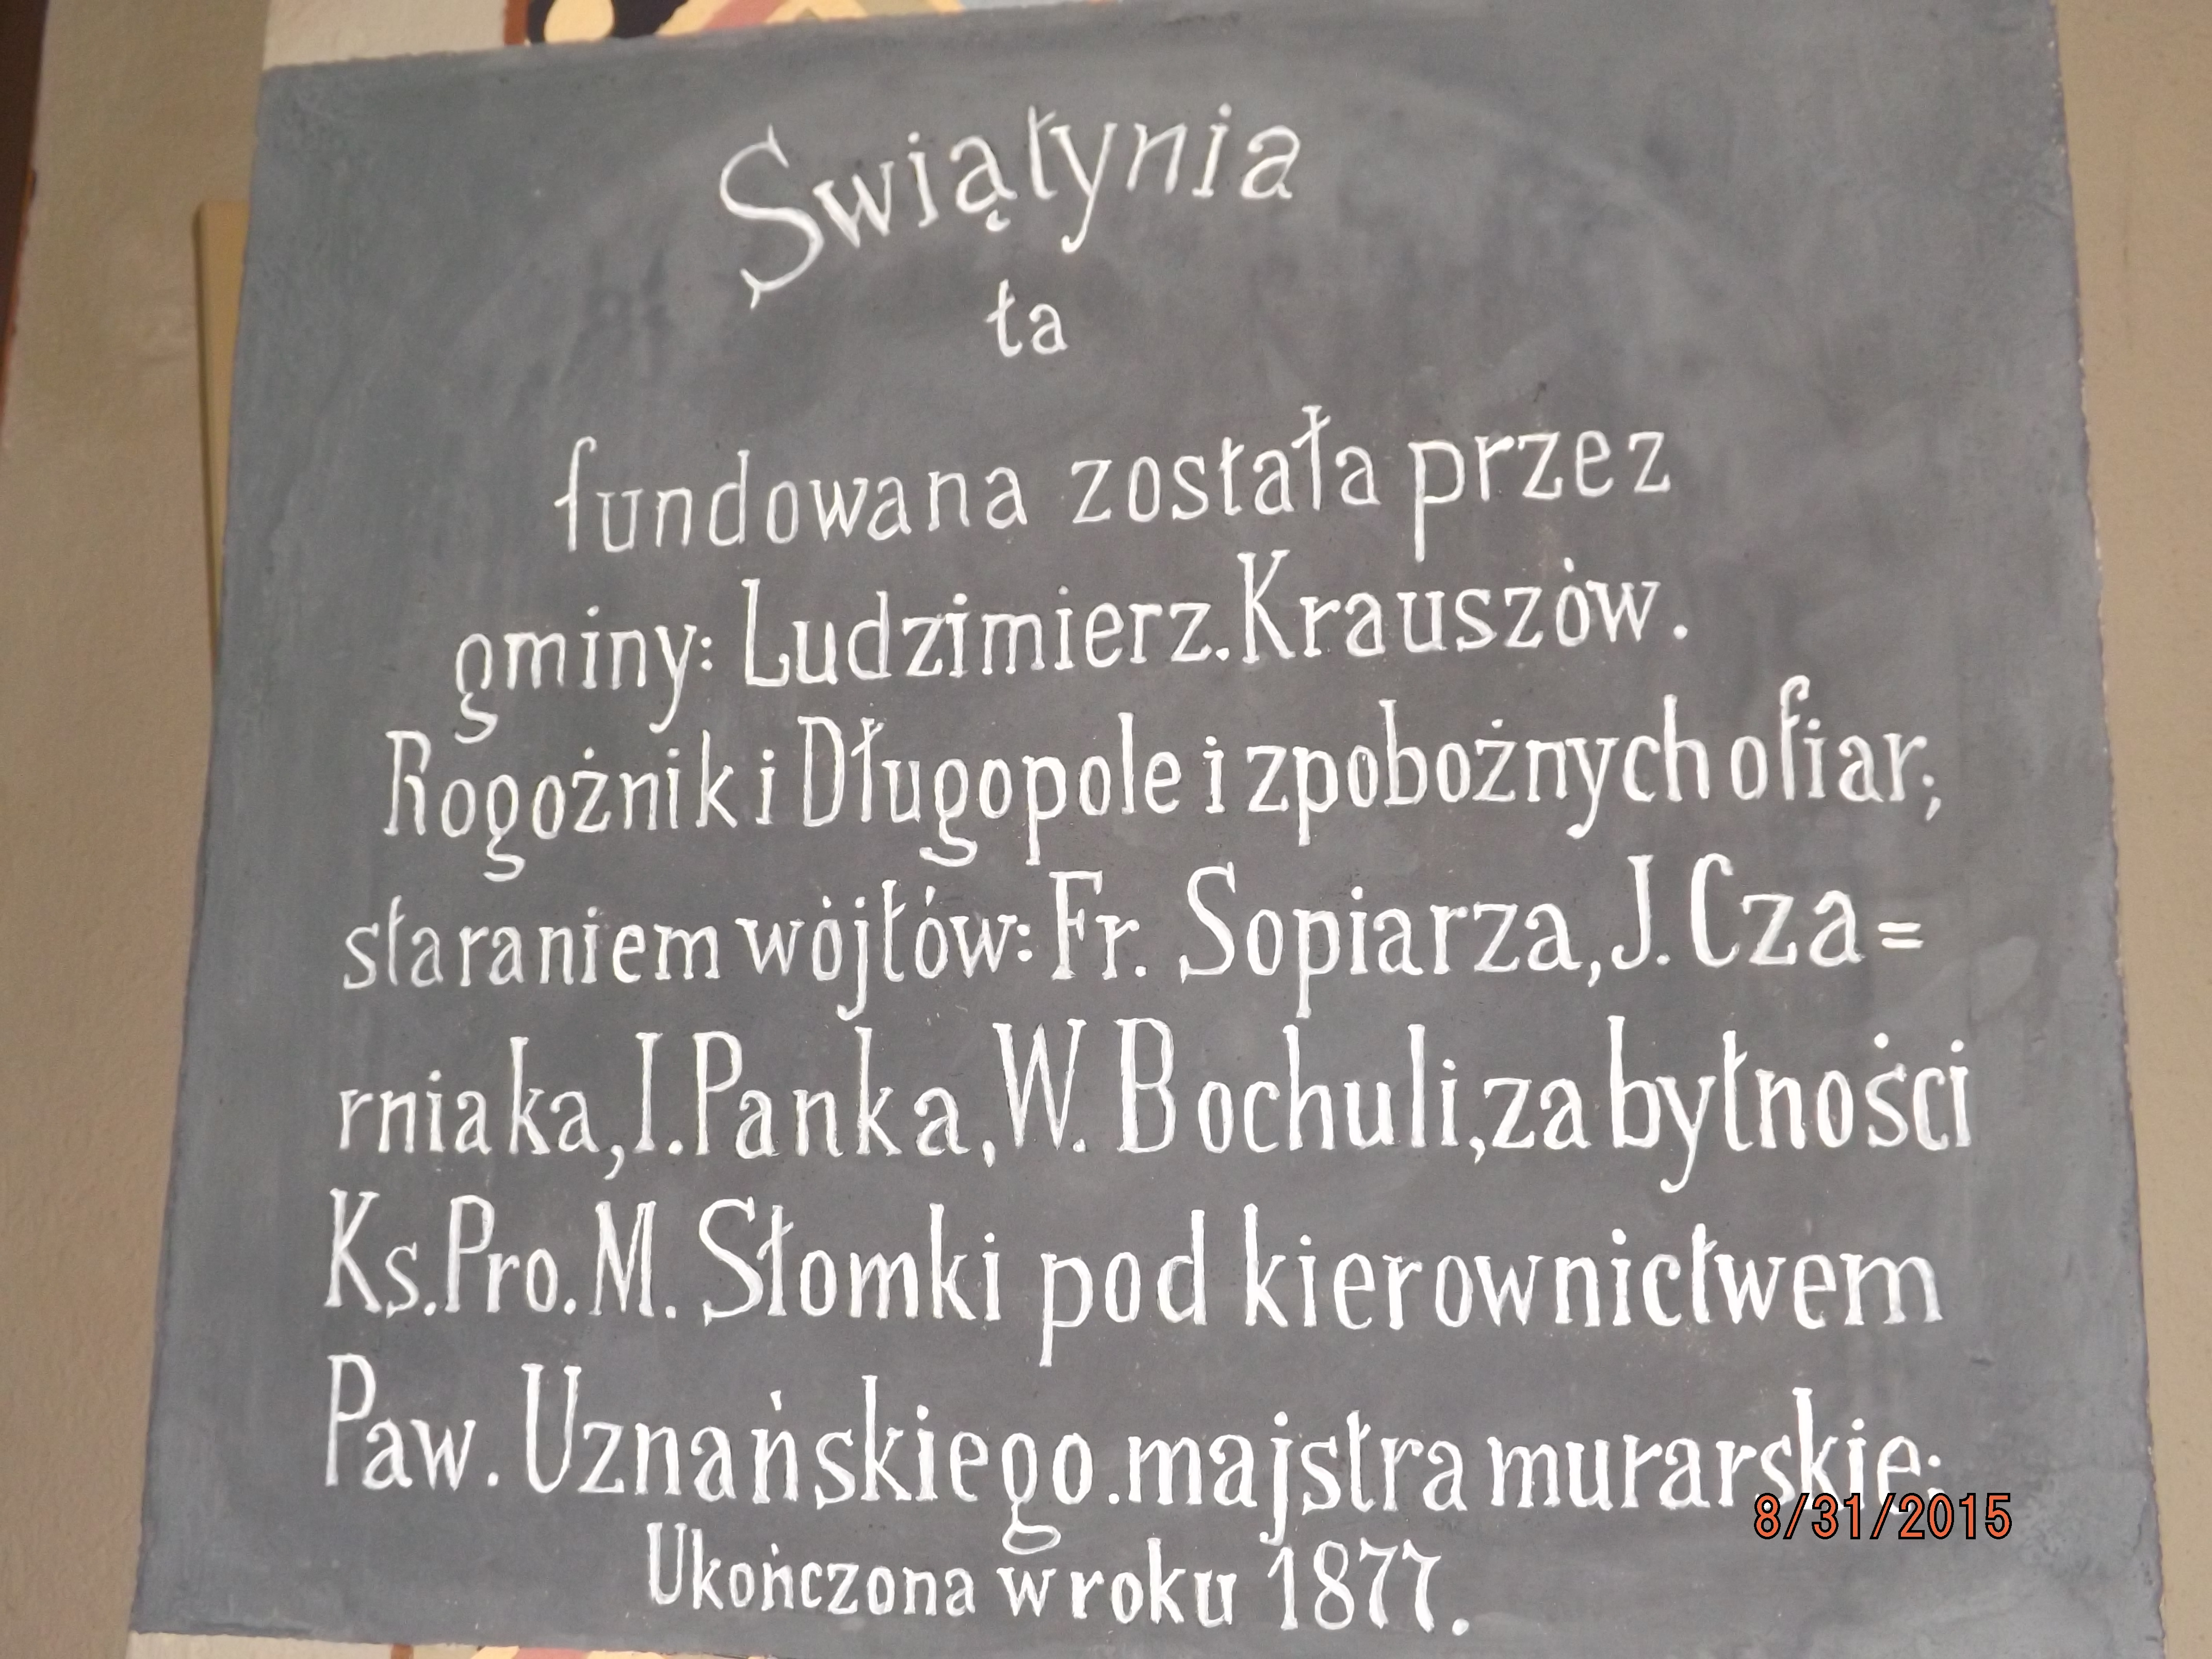 Swiątynia
ta
fundowana została przez
gminy: Ludzimierz. Krauszów.
Rogożnik i Długopole i z pobożnych ofiar;
staraniem wójtów: Fr. Sopiarza, J. Cza=
rniaka, I. Panka, W. Bochuli, za bytności
Ks. Pro. M. Słomki pod kierownictwem
Paw. Uznańskiego. majstra murarskie:
Ukończona w roku 1877.
8/31/2015